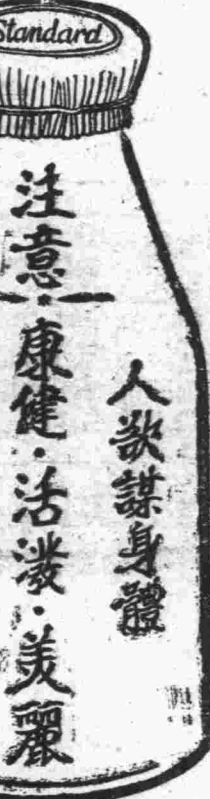 Standard
人欲謀身體
注意·康健·活潑·美麗